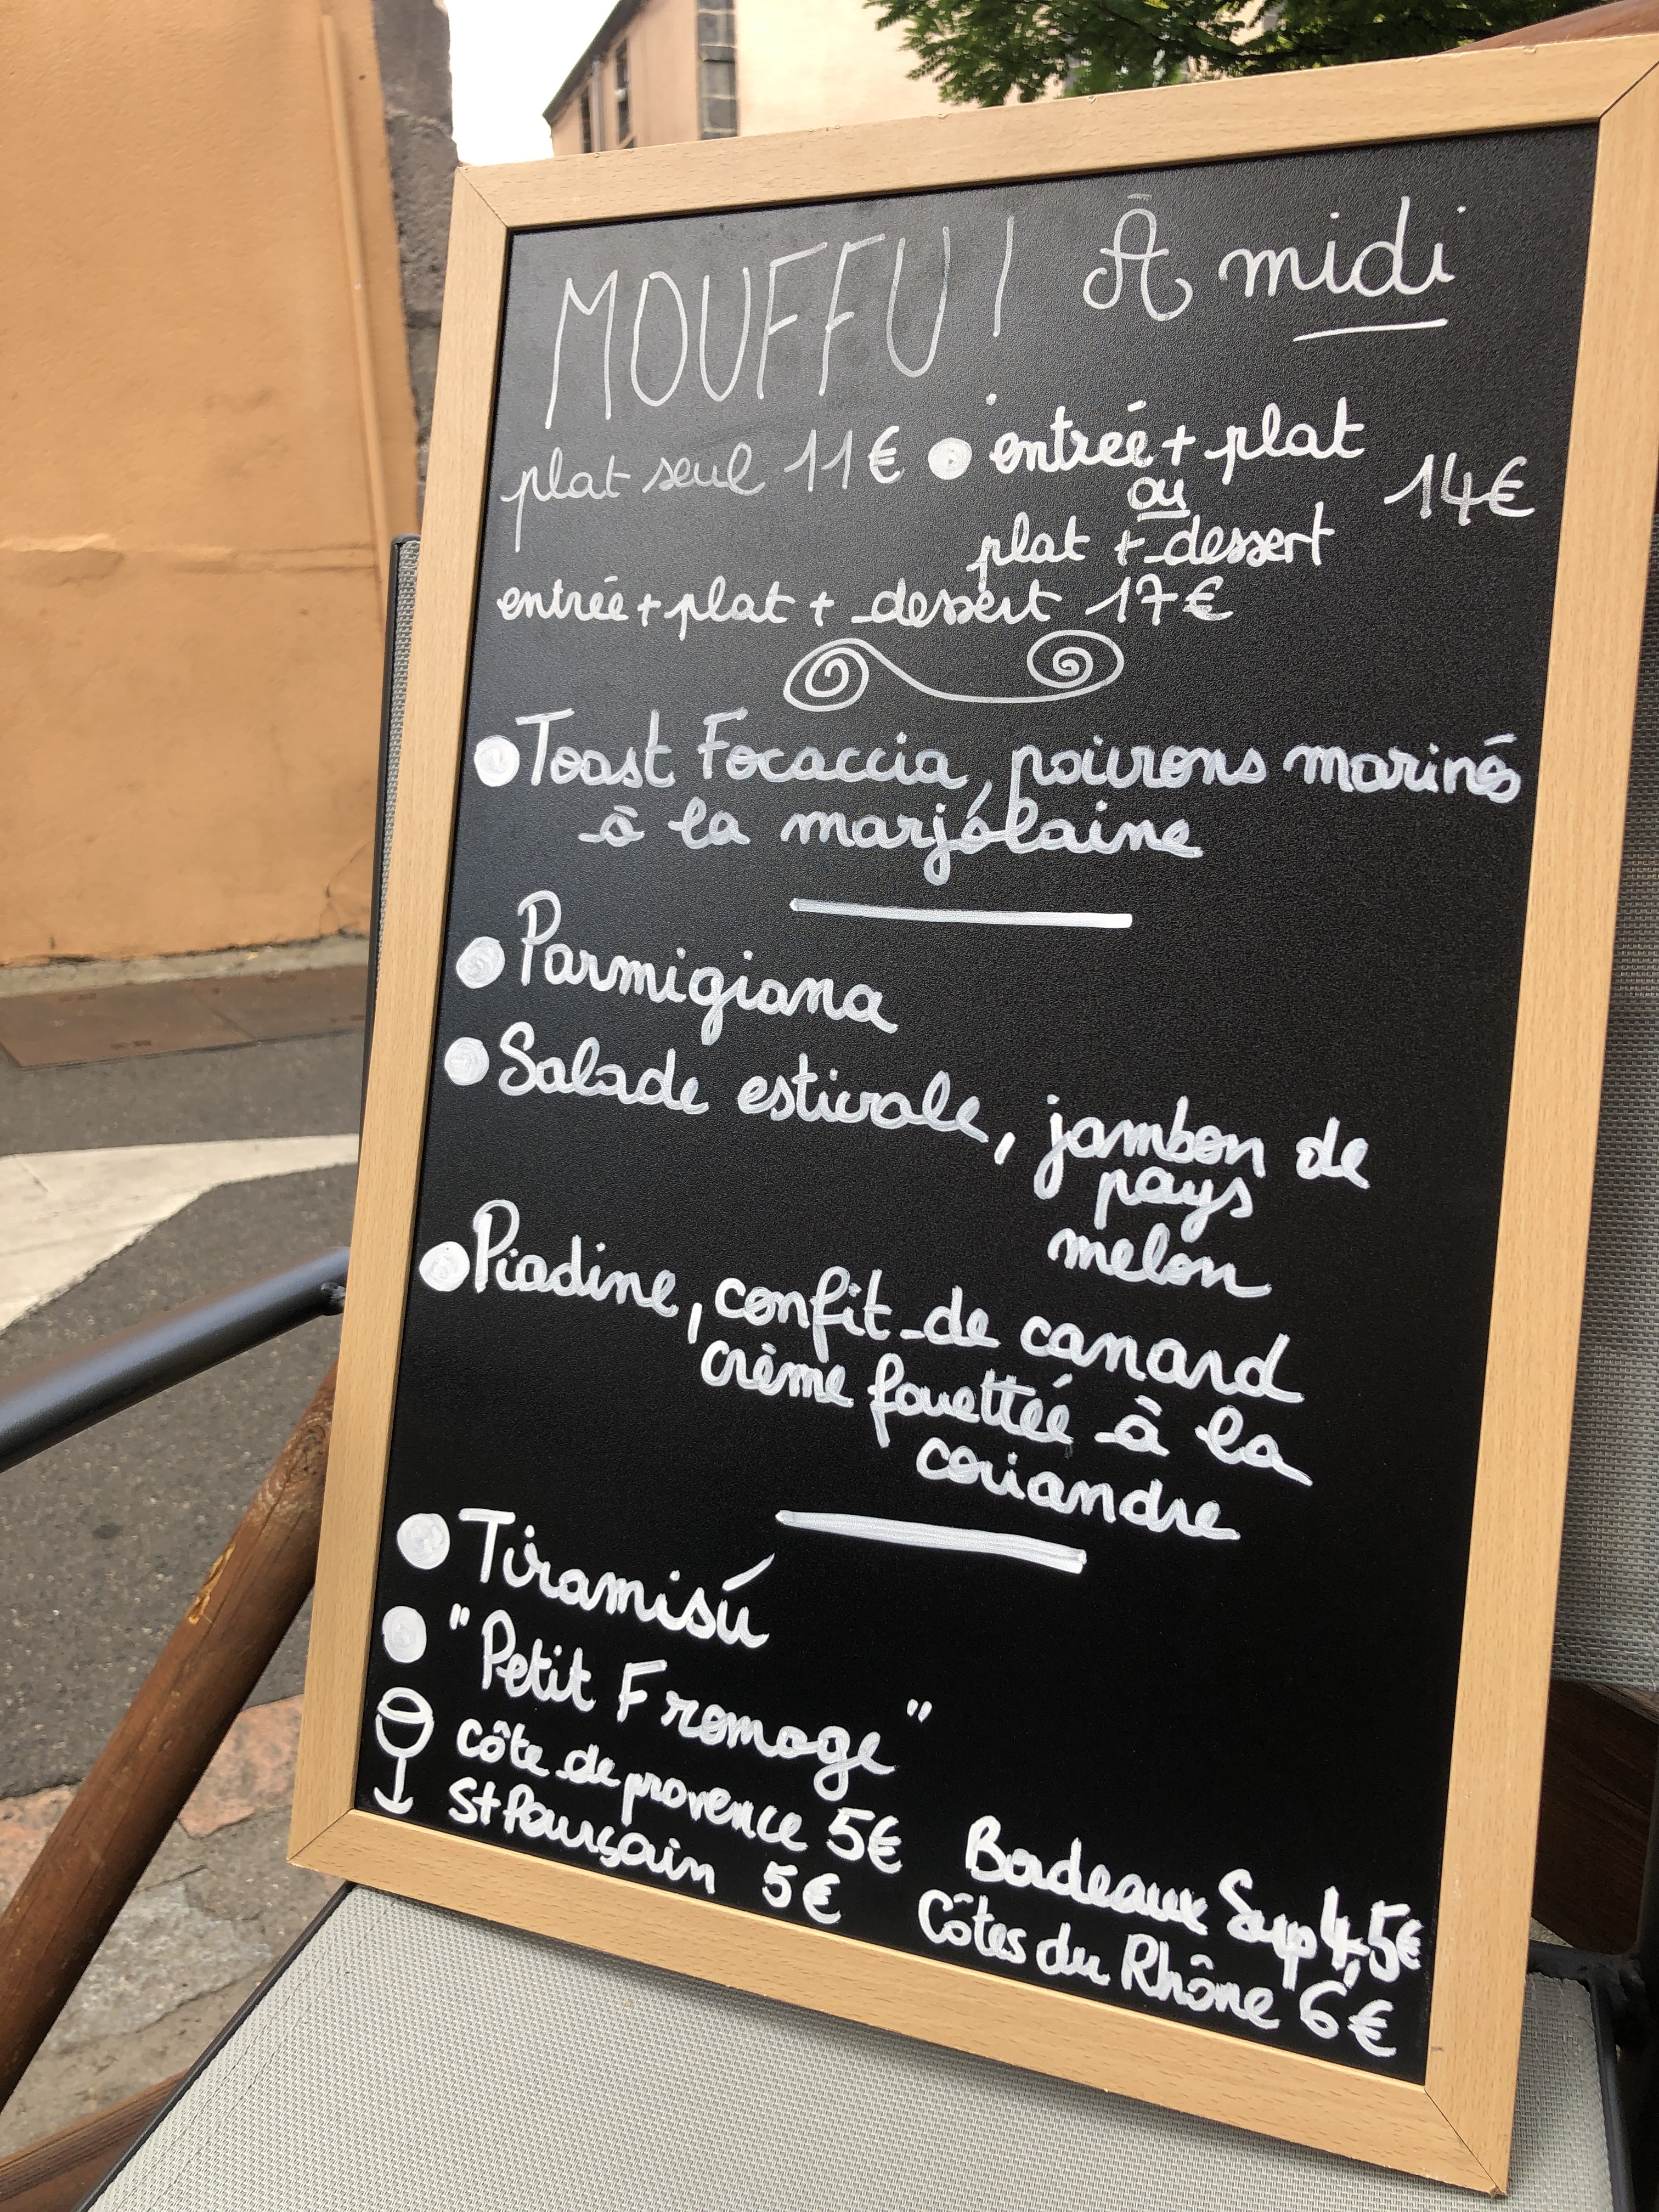 MOUFFU! À midi
plat seul 11€ • entrée + plat
ou
14€
plat + dessert
entrée + plat + dessert 17€
• Toast Focaccia, poivrons marinés
à la marjolaine
• Parmigiana
• Salade estivale, jambon de
pays
melon
• Piadine, confit de canard
crème fouettée à la
coriandre
• Tiramisú
• "Petit Fromage"
côte de provence 5€
Bordeaux Sup 4,5€
St Pourçain 5€
Côtes du Rhône 6€